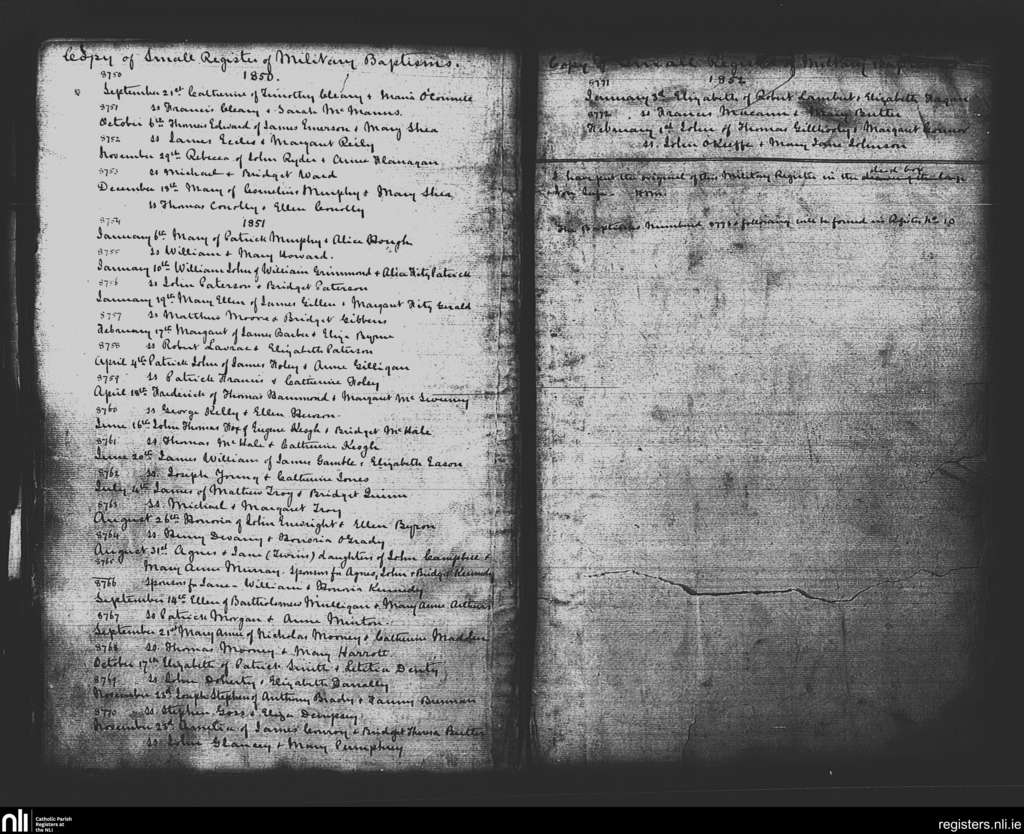 Copy of Small Register of Military Baptisms.
8750
1850.
September 21st Catherine of Timothy Cleary & Maria O'Connell
8751 ss Francis Cleary & Sarah McManus.
October 6th Thomas Edward of James Emerson & Mary Shea
8752 ss James Eccles & Margaret Reily
November 29th Rebecca of John Ryder & Anne Flanagan
8753 ss Michael & Bridget Ward
December 18th Mary of Cornelius Murphy & Mary Shea
ss Thomas Conolly & Ellen Conolly
8754 1851
January 6th Mary of Patrick Murphy & Alice Hough
8755 ss William & Mary Howard.
January 10th William John of William Grimmond & Alice FitzPatrick
8756 ss John Paterson & Bridget Paterson
January 19th Mary Ellen of James Gillen & Margaret Fitz Gerald
8757 ss Matthew Moore & Bridget Gibbons
February 17th Margaret of James Barber & Eliza Byrne
8758 ss Robert & Elizabeth Paterson
April 4th Patrick John of James Foley & Anne Gilligan
8759 ss Patrick Francis & Catherine Foley
April 18th Frederick of Thomas & Margaret McSweeny
8760 ss George Kelly & Ellen
June 16th John Thomas of Eugene Keogh & Bridget McHale
8761 ss. Thomas McHale & Catherine Keogh
June 20th James William of James Gamble & Elizabeth Eason
8762 ss. Joseph Young & Catherine Jones
July 4th James of Mathew Troy & Bridget Quinn
8763 ss. Michael & Margaret Troy
August 26th Honoria of John Enwright & Ellen Byron
8764 ss. Benny Devany & Honoria O'Grady
August 31st Agnes & Jane (Twins) daughters of John Campbell &
8765 Mary Anne Murray. Sponsors for Agnes, John & Bridget Kennedy
8766 Sponsors for Jane - William & Honoria Kennedy
September 14th Ellen of Bartholomew Mulligan & Mary Anne
8767 ss Patrick Morgan & Anne Minton.
September 21st Mary Anne of Nicholas Mooney & Catherine Madden
8768 ss. Thomas Mooney & Mary Harrott.
October 17th Elizabeth of Patrick Smith & Letitia
8769 ss John Doherty & Elizabeth Danally
November 23d Joseph Stephen of Anthony Brady & Fanny Brennan
8770 ss. Stephen Goss & Eliza Dempsey
November 25th of James Conroy & Bridget Theresa Butler
ss. John Glancey & Mary Pumphrey
Copy of Small Register of Military Baptisms
8771 1852
January 3d Elizabeth of Robert Lambert & Elizabeth Fagan
8772 ss Francis & Mary Butler
February 1st John of Thomas Gillhooly & Margaret Connor
ss. John O'Keeffe & Mary Jane Johnson
I have put the original of this Military Register in the of the large
The Baptisms Numbered 8773 & following will be found in Register No
nli Catholic Parish
Registers at
the NLI
registers.nli.ie